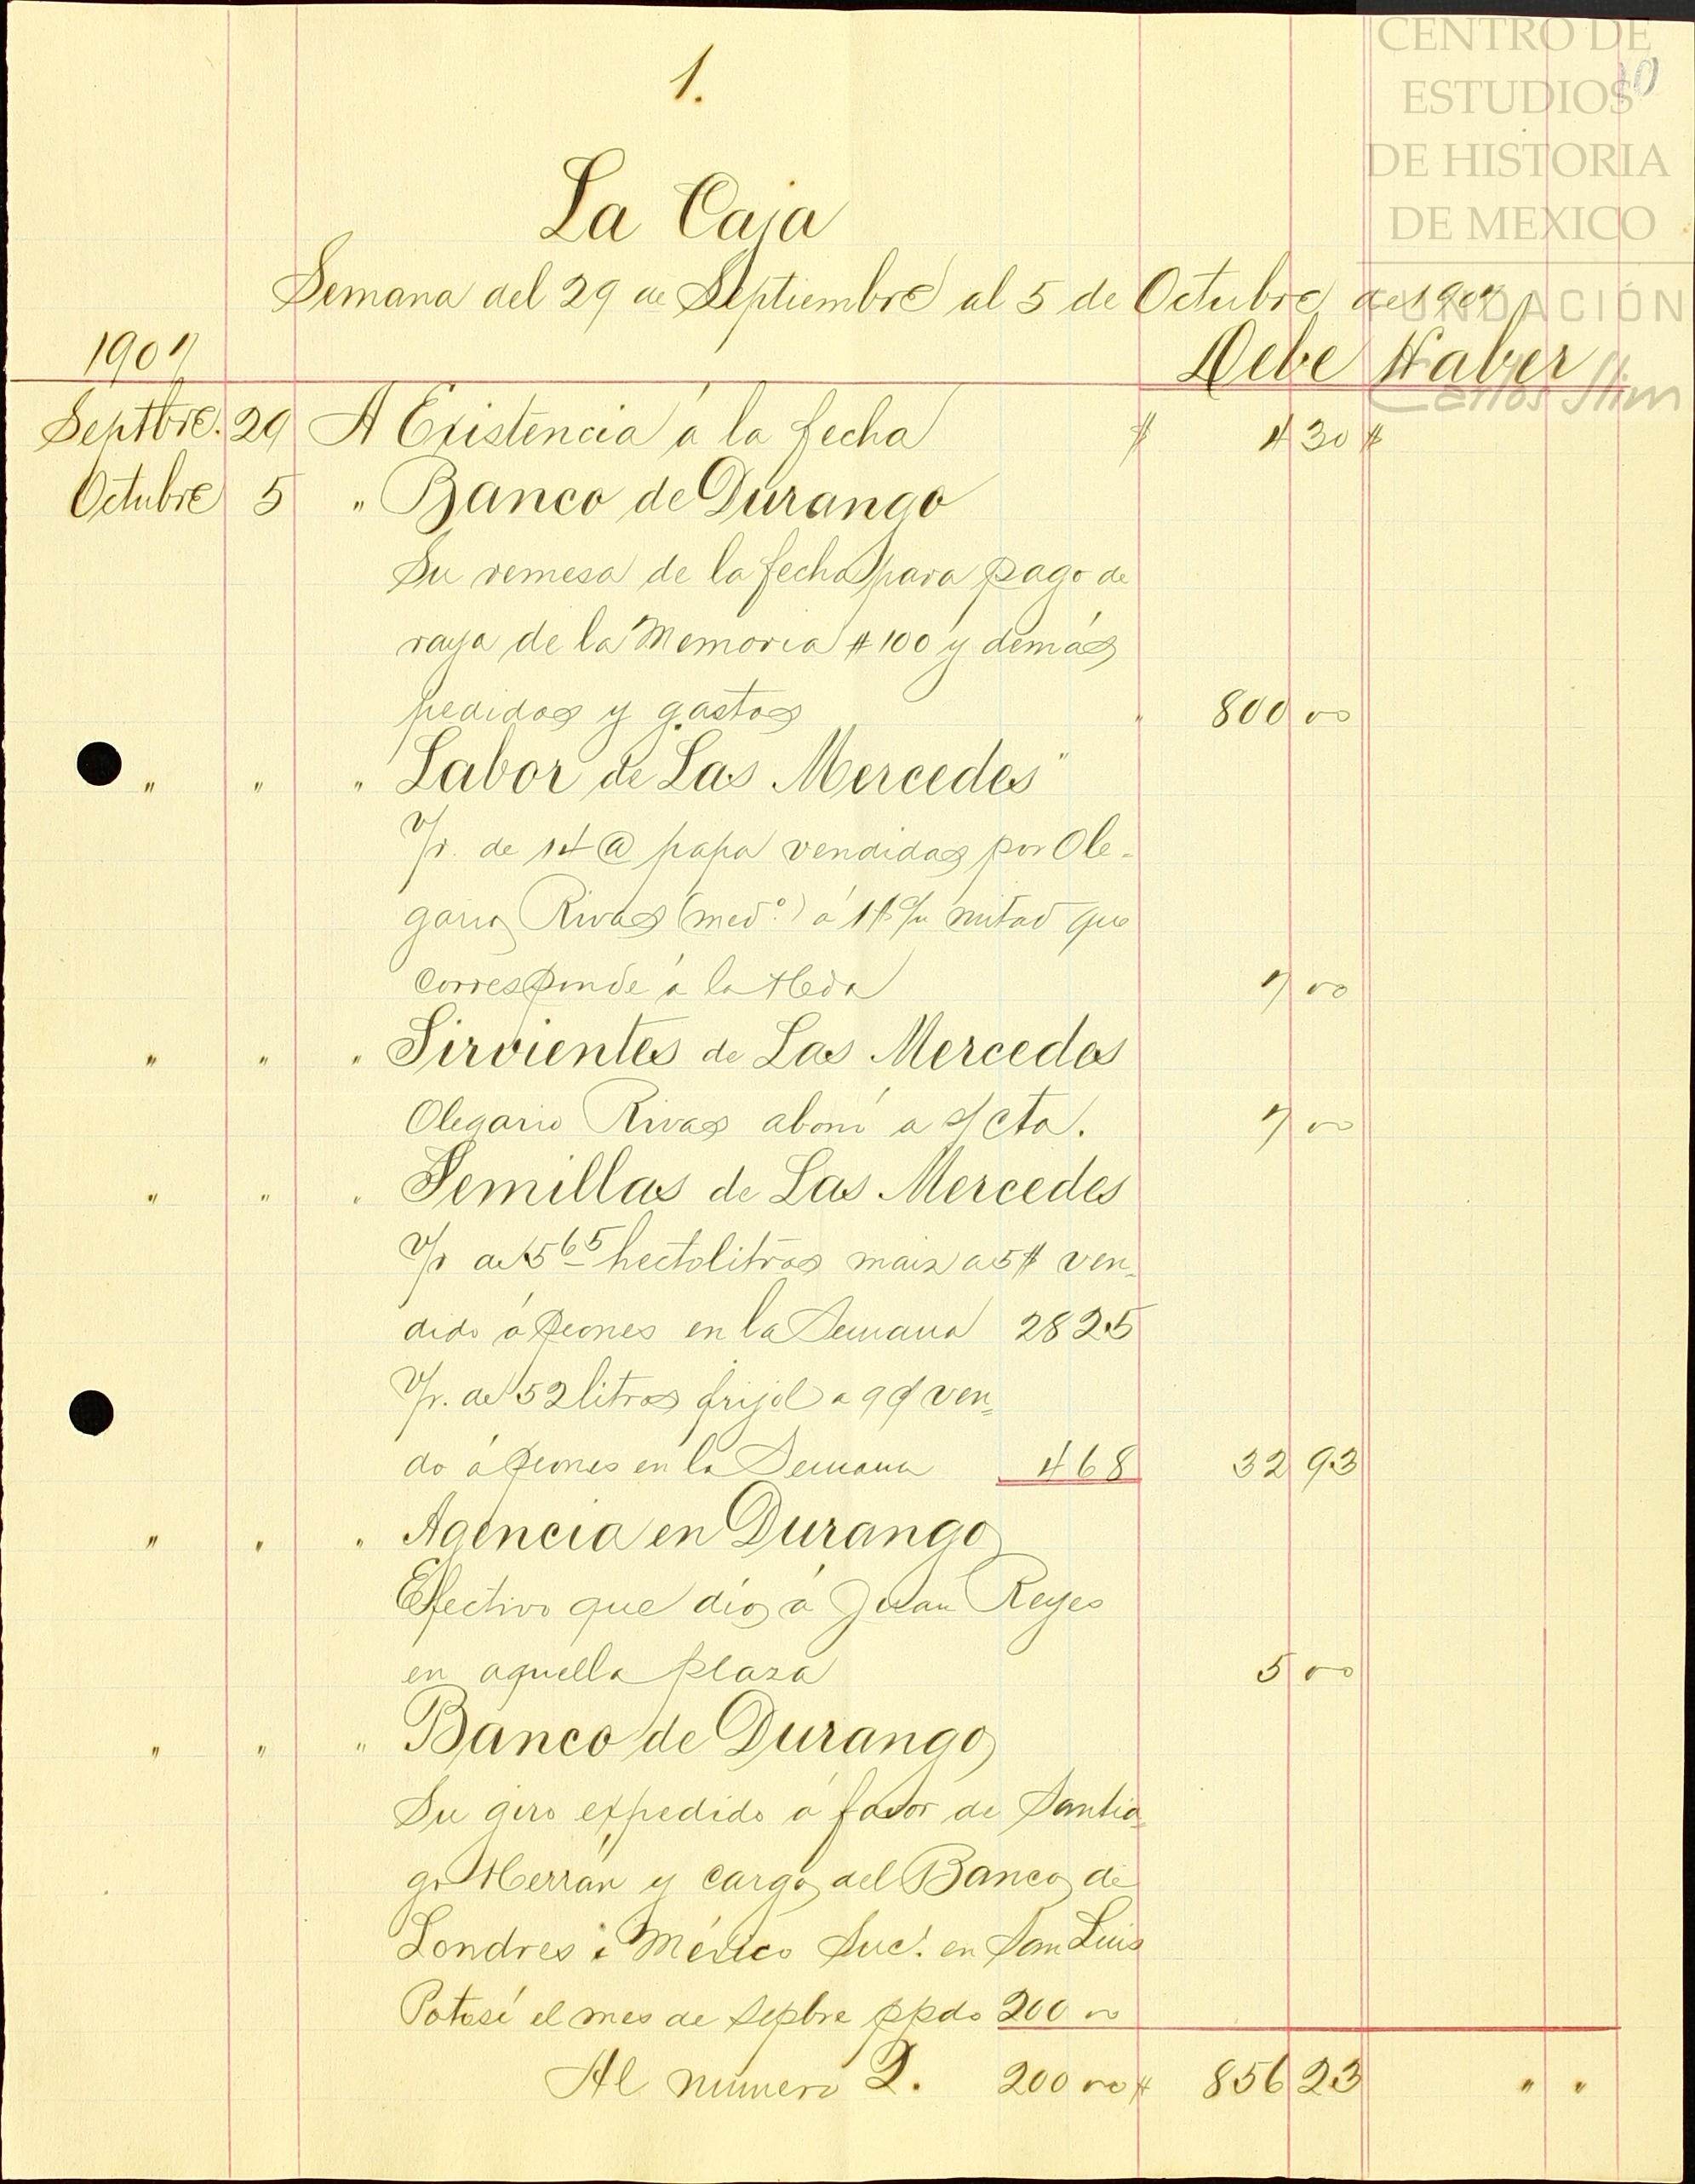 CENTRO DE
ESTUDIOS
DE HISTORIA
DE MEXICO
FUNDACIÓN
Carlos Slim
10
1.
La Caja
Semana del 29 de Septiembre al 5 de Octubre de 1907
1907 Debe Haber
Septbre. 29 A Existencia á la fecha $ 4 30 $
Octubre 5 " Banco de Durango
Su remesa de la fecha para pago de
raya de la Memoria # 100 y demás
pedidos y gastos " 800 00
" " " Labor de Las Mercedes"
V/r. de 14 @ papa vendidas por Ole-
gario Rivas (med.º) á 1$ c/u mitad que
corresponde á la Hcda 7 00
" " " Sirvientes de Las Mercedes
Olegario Rivas abonó a s/ cta. 7 00
" " " Semillas de Las Mercedes
V/r de 5 65 hectolitros maiz a 5$ ven-
dido á peones en la Semana 28 25
V/r. de 52 litros frijol a 9¢ ven-
do á peones en la Semana 4 68 32 93
" " " Agencia en Durango
Efectivo que dió á Juan Reyes
en aquella plaza 5 00
" " " Banco de Durango
Su giro expedido á favor de Santia-
go Herrán y cargo del Banco de
Londres i México Suc. en San Luis
Potosí el mes de Sepbre ppdo 200 00
Al número 2. 200 00 $ 856 23 " "